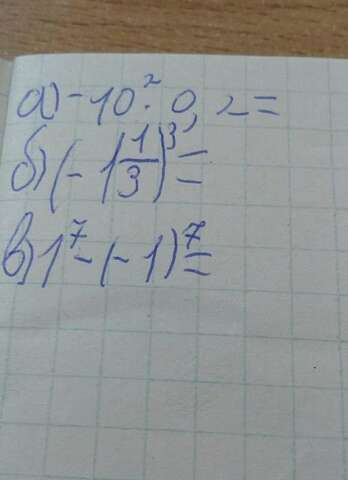 а) -10² · 0,2 =
б) (-1 1/3)³ =
в) 1⁷ - (-1)⁷ =